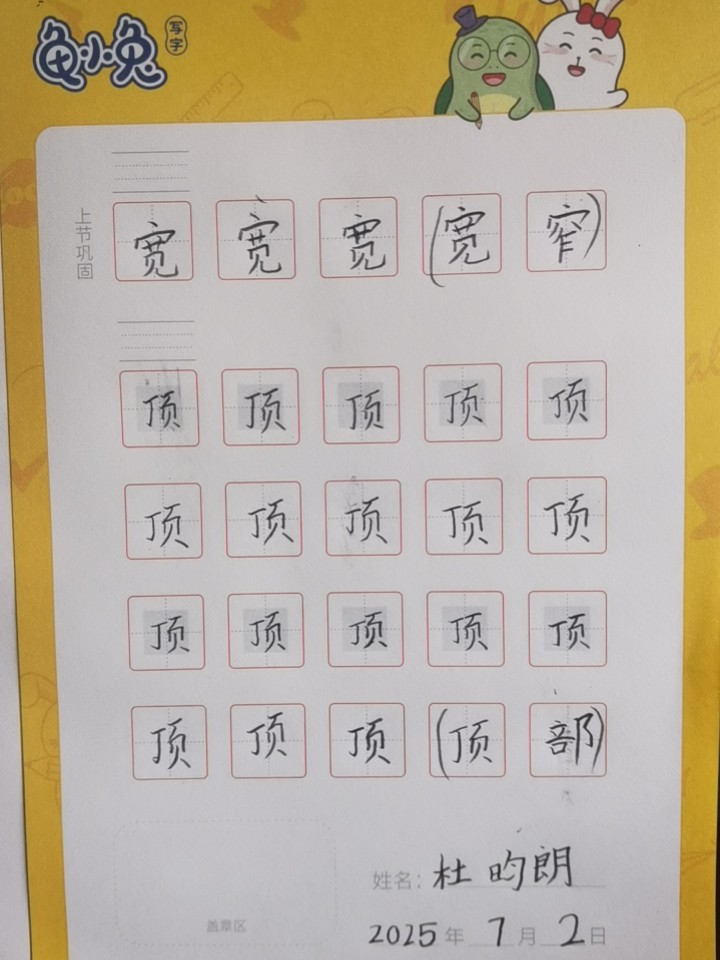 龟小兔写字
上节巩固
宽 宽 宽 (宽 窄)
顶 顶 顶 顶 顶
顶 顶 顶 顶 顶
顶 顶 顶 顶 顶
顶 顶 顶 (顶 部)
姓名: 杜昀朗
盖章区
2025年 7月 2日